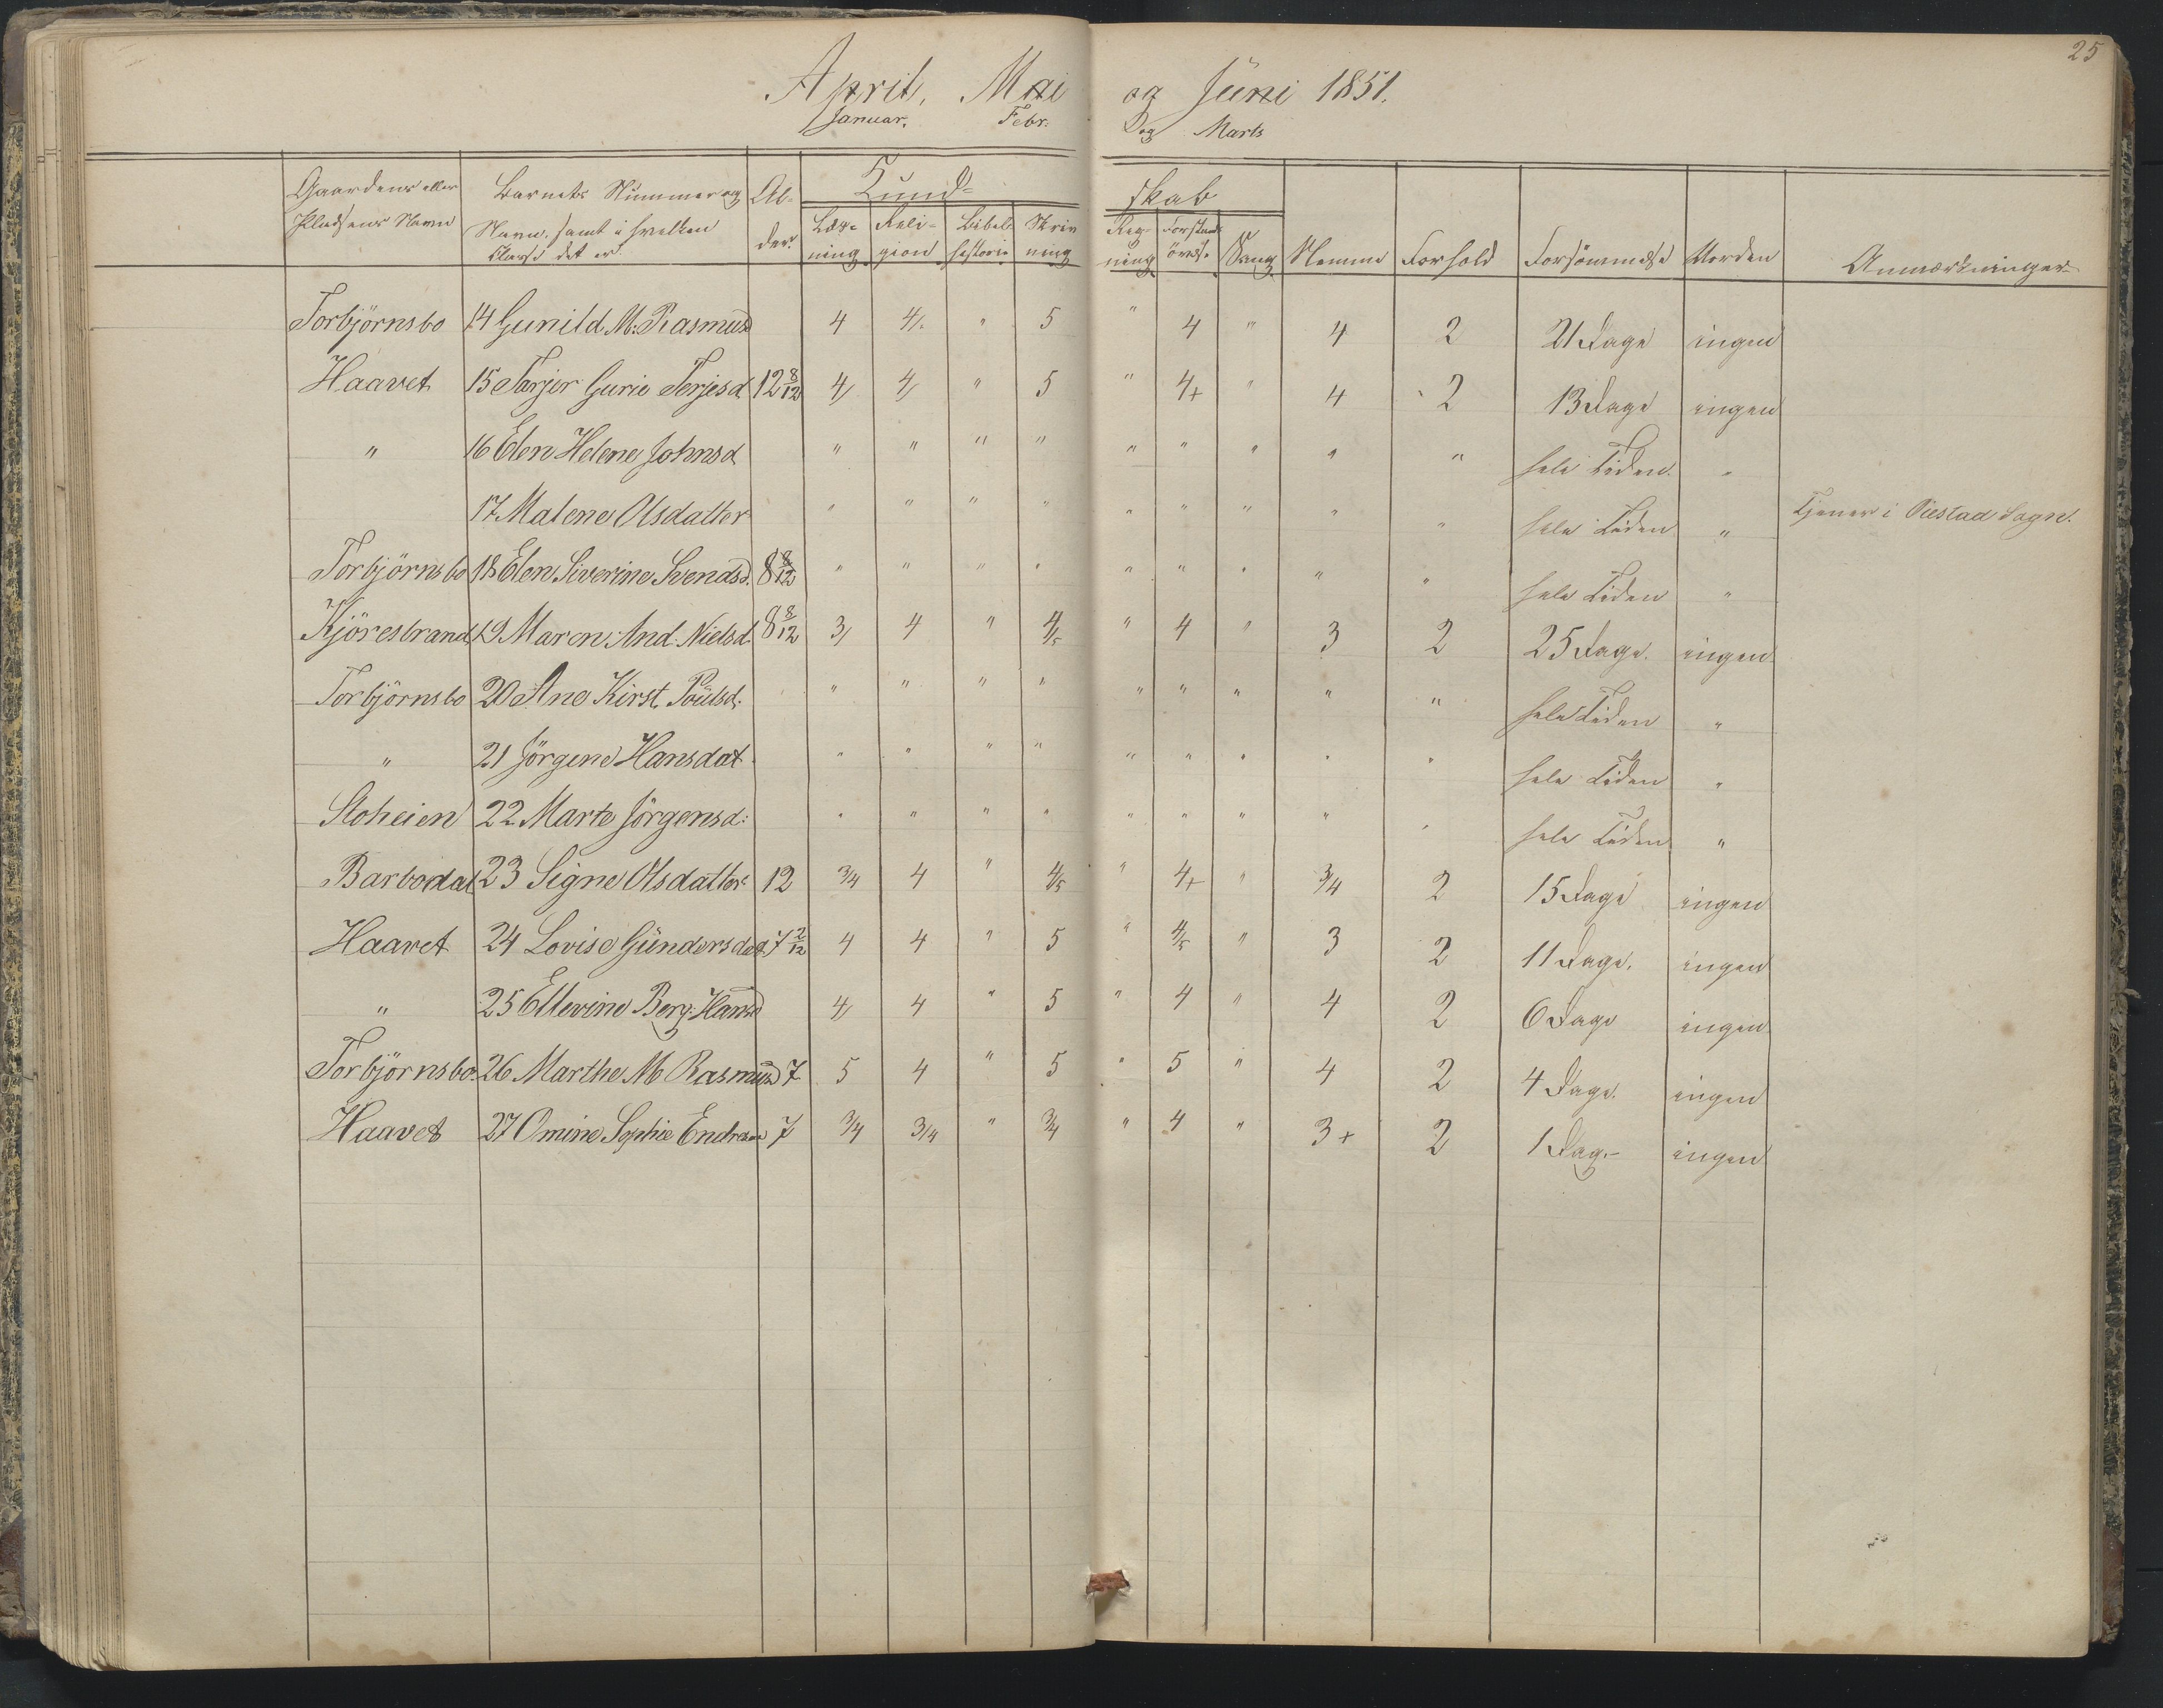 25
April, Mai og Juni 1851.
Januar, Febr. og Marts
Gaardens eller Pladsens Navn | Barnets Nummer og Navn, samt i hvilken Klasse det er | Alder. | Kundskab | Stemme | Forhold | Forsømmelse | Orden | Anmærkninger
Læsning | Religion | Bibelhistorie | Skrivning | Regning | Forstandsøvelse | Sang
Torbjörnsbo 14 Gunild M: Rasmusd 4 4 " 5 " 4 " 4 2 21 Dage ingen
Haavet 15 Terjer Gurie Terjesd 12 8/12 4 4 " 5 " 4+ " 4 2 13 Dage ingen
" 16 Elen Helene Johnsd " " " " " " " " " hele Tiden "
17 Malene Olsdatter " " " " " " " " " hele Tiden " Tjener i Öiestad Sogn.
Torbjörnsbo 18 Elen Siverine Svendsd. 8 8/12 " " " " " " " " " hele Tiden "
Kjöresbrand 19 Maren And. Nielsd. 8 8/12 3 4 " 4/5 " 4 " 3 2 25 Dage. ingen
Torbjörnsbo 20 Ane Kirst. Poülsd. " " " " " " " " " hele Tiden "
" 21 Jörgine Hansdat " " " " " " " " " hele Tiden "
Stoheien 22 Marte Jörgensd: " " " " " " " " " hele Tiden "
Barbodal 23 Signe Olsdatter 12 3/4 4 " 4/5 " 4+ " 3/4 2 15 Dage ingen
Haavet 24 Lovise Gündersdat. 7 2/12 4 4 " 5 " 4/5 " 3 2 11 Dage. ingen
" 25 Ellevine Berg. Hansd 4 4 " 5 " 4 " 4 2 6 Dage ingen
Torbjörnsbo 26 Marthe M Rasmusd 7 5 4 " 5 " 5 " 4 2 4 Dage. ingen
Haavet 27 Omine Sophie 7 3/4 3/4 " 3/4 " 4 " 3+ 2 1 Dag.- ingen